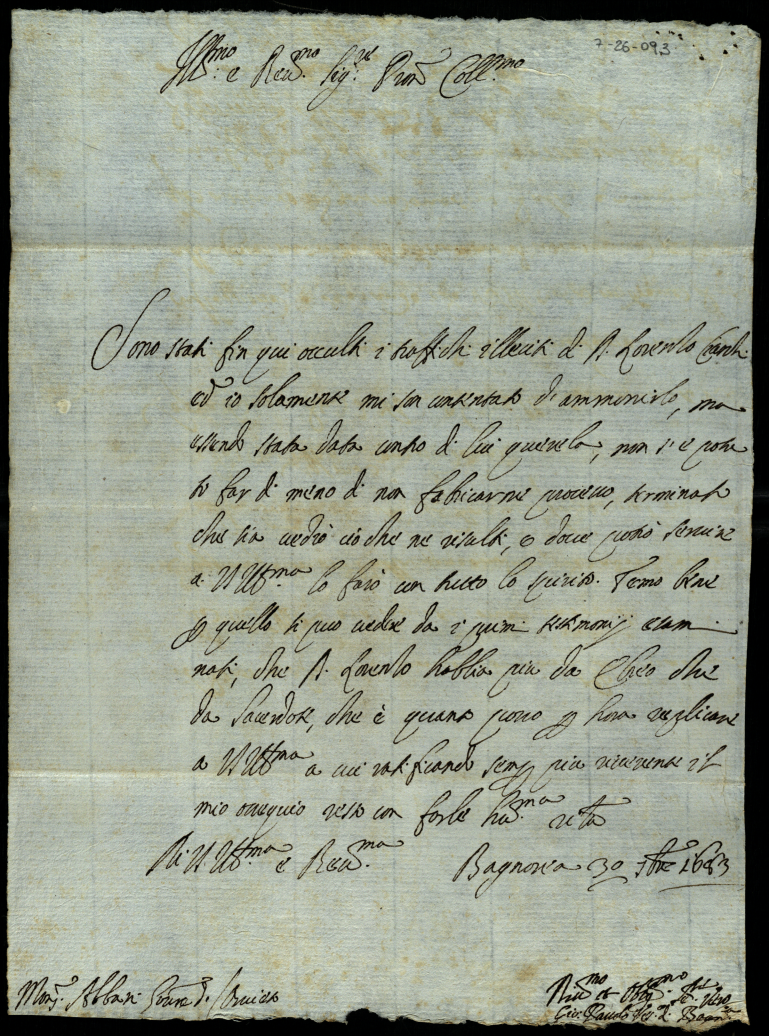 7-26-093
Ill.mo e Rev.mo Sig.re Pron Coll.mo
Sono stati fin qui occulti i traffichi illeciti di D. Lorenzo
ed io solamente mi son contentato di ammonirlo, ma
essendo stata data contro di lui querela, non s'è potu
to far di meno di non fabricarne processo, terminato
che sia vedrò ciò che ne risulti, e dove potrò servire
a V.S. Ill.ma lo farò con tutto lo spirito. Temo bene
p quello si può vedere da i primi testimonij esami
nati, che D. Lorenzo habbia più da Ebreo che
da Sacerdote, che è quanto posso p hora replicare
a V.S. Ill.ma a cui ratificando semp più riverente il
mio ossequio resto con farle hu.ma reva
Di V.S. Ill.ma e Rev.ma Bagnorea 30 1683
Mons. Abbati